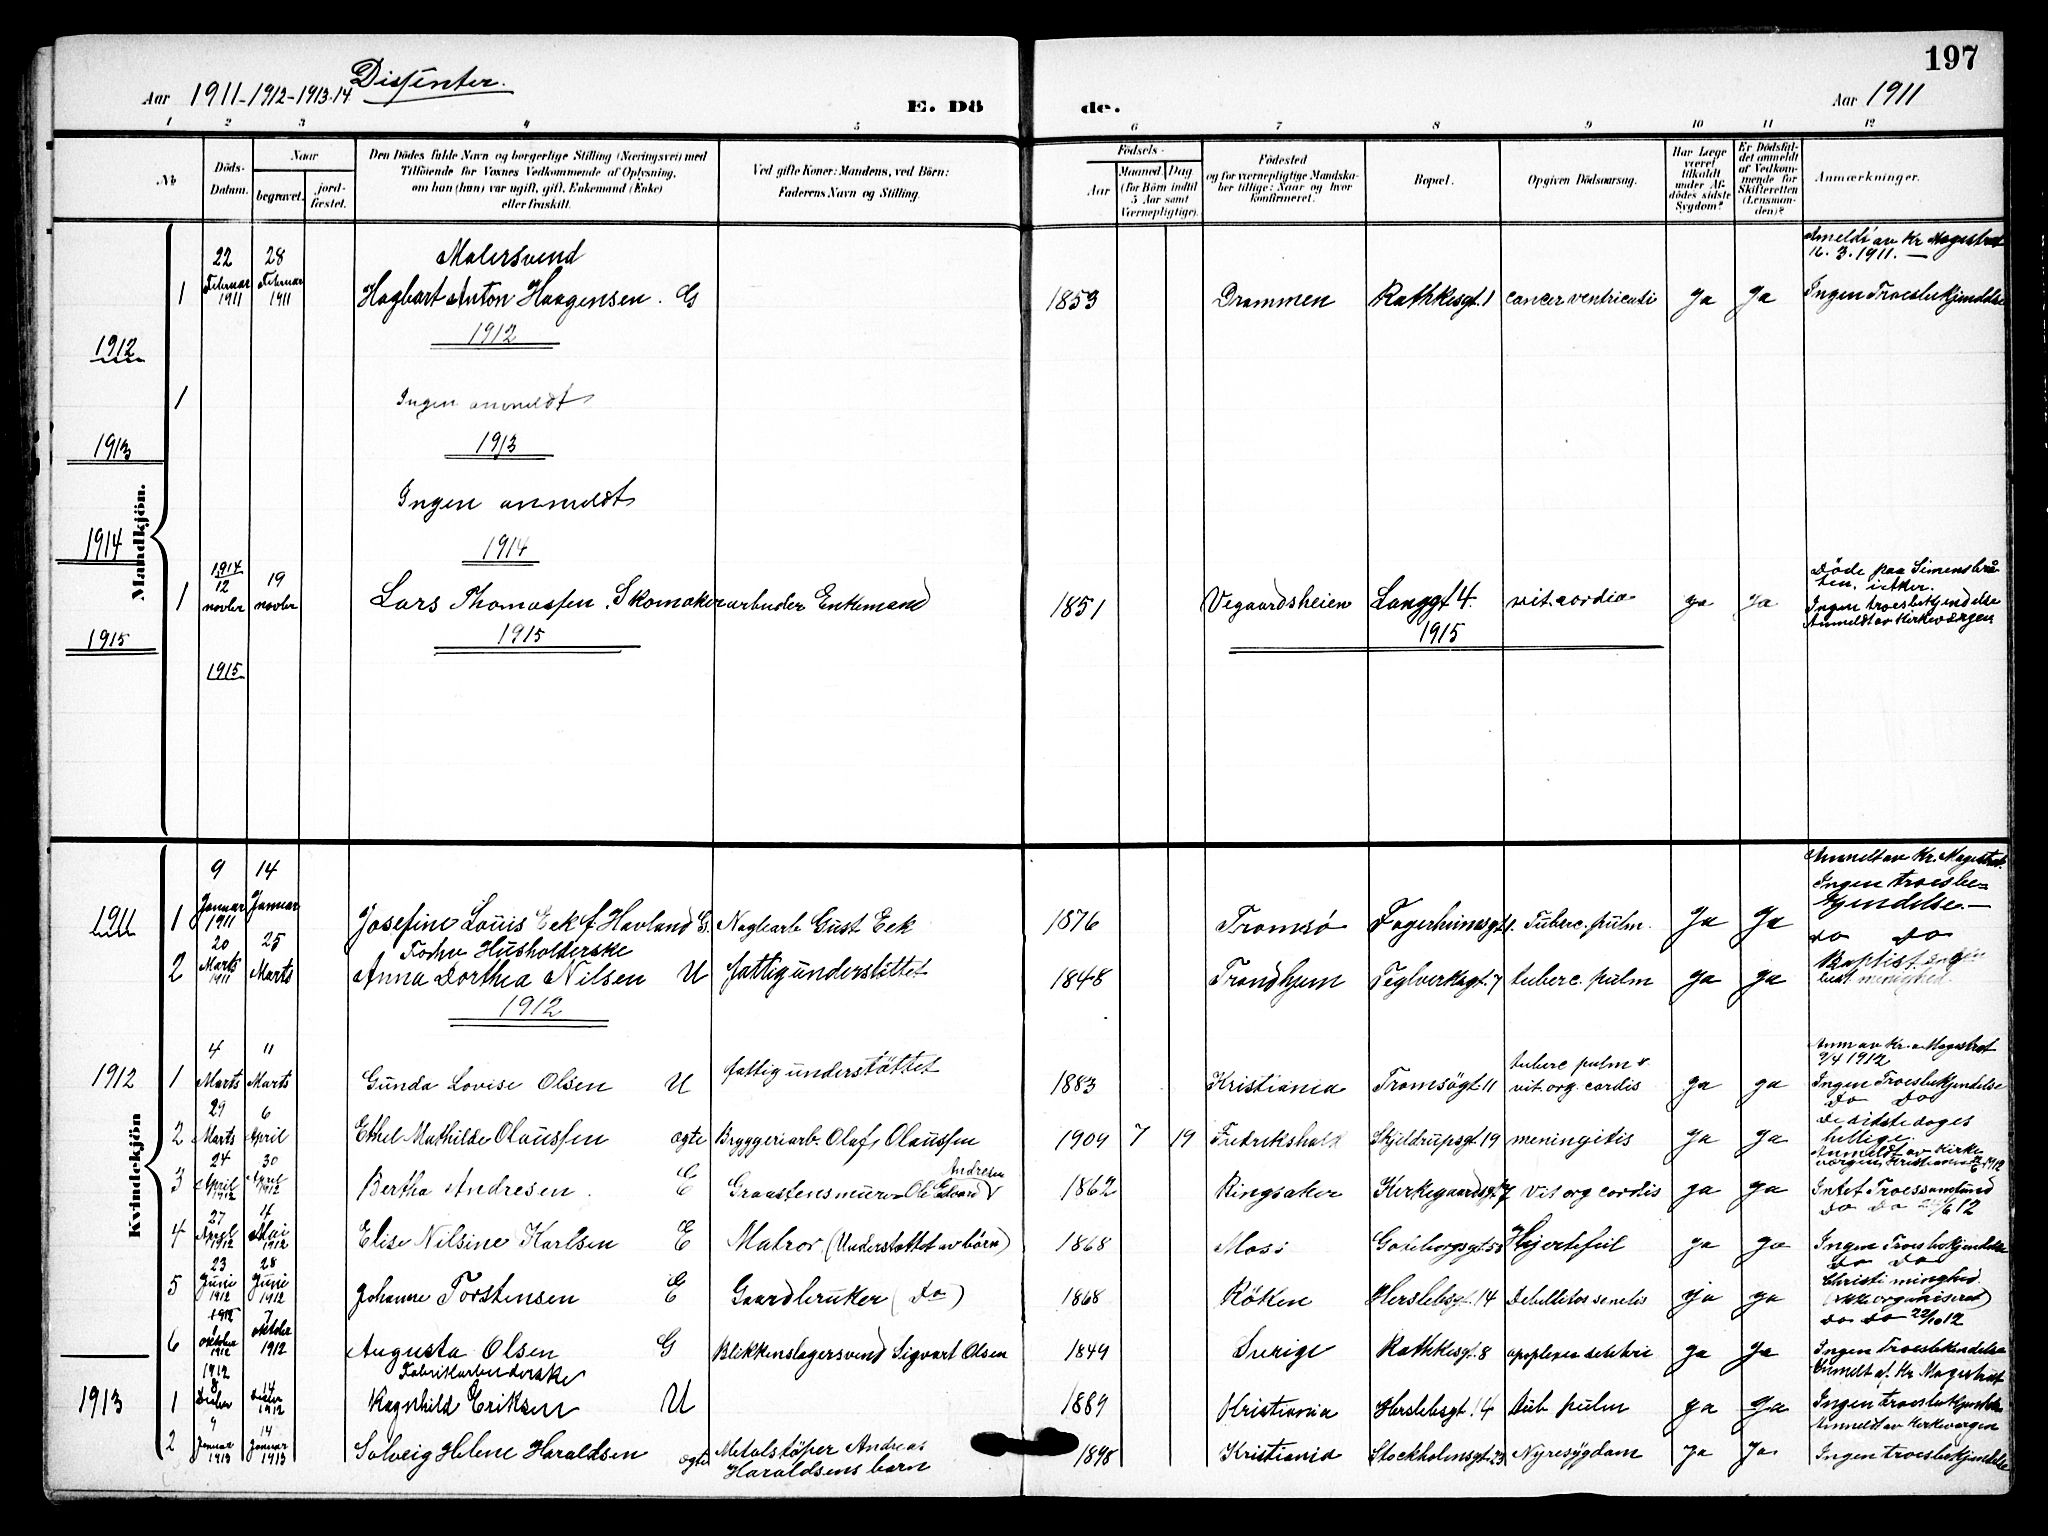 197
Aar 1911-1912-1913-14 Dissenter.
E. Döde.
Aar 1911
1 2 3 4 5 6 7 8 9 10 11 12
No
Döds-Datum.
Naar
begravet.
jord-fæstet.
Den Dödes fulde Navn og borgerlige Stilling (Næringsvei) med
Tilföiende for Voxnes Vedkommende af Oplysning,
om han (hun) var ugift, gift, Enkemand (Enke)
eller fraskilt.
Ved gifte Koner: Mandens, ved Börn:
Faderens Navn og Stilling.
Födsels-
Aar
Maaned (for Börn indtil 5 Aar samt Værnepligtige).
Dag
Födested
og for værnepligtige Mandska-
ber tillige: Naar og hvor
konfirmeret.
Bopæl.
Opgiven Dödsaarsag.
Har Læge været tilkaldt under Afdödes sidste Sygdom?
Er Dödsfaldet anmeldt af Vedkommende for Skifteretten (Lensmanden)?
Anmærkninger.
Mandkjön.
1 22 Februar 1911 28 Februar 1911 Malersvend
Hagbart Anton Haagensen. G 1853 Drammen Rathkesgt. 1 cancer ventriculi Ja Ja Anmeldt av Kr. Magistrat 16.3.1911. Ingen Troesbekjendelse
1912
1912
1 Ingen anmeldt
1913
1913
Ingen anmeldt
1914
1914
1 1914 12 novbr 19 novbr Lars Thomassen. Skomakerarbeider Enkemand 1851 Vegaardsheien Langgt 4. vit. cordis ja ja Döde paa Simensbråten. i Aker. Ingen troesbekjendelse Anmeldt av Kirkevergen
1915
1915
1915
1915
Kvindekjön
1911 1 9 Januar 1911 14 Januar Josefine Louis Eek f. Havland G. Naglearb Gust Eek 1876 Tromsö Fagerheimsgt. Tuberc. pulm. Ja Ja Anmelt av Kr. Magistrat. Ingen troesbekjendelse.
2 20 Marts 1911 25 Marts Husholderske
Anna Dorthea Nilsen U fattigunderstittet 1848 Trondhjem Teglverksgt. 7 tuberc. pulm ja ja do do Baptist. Ingen menighed.
1912
1912 1 4 Marts 11 Marts Gunda Lovise Olsen U fattigunderstöttet 1883 Kristiania Tromsögt. 11 tuberc pulm & vit. org. cordis ja ja Anm av Kr. Magistrat 9/4 1912 Ingen Troesbekjendelse
2 29 Marts 6 April Ethel Mathilde Olaussen ægte Bryggeriarb. Olaf Olaussen 1909 7 19 Fredrikshald Skjeldrupsgt. 19 meningitis ja ja do do De sidste dages hellige.
3 24 April 1912 30 April 1912 Bertha Andresen. E Graastensmurer Ole Edvard Andresen 1862 Ringsaker Kirkegaardsgt. 7 Vit org cordis ja ja Anmeldt av Kirkevergen, Kristiania 1912 Intet Troessamfund
4 27 April 1912 4 Mai 1912 Elise Nilsine Karlsen E Matros (Understøttet av börn) 1868 Moss Göteborgsgt. Hjertefeil ja ja do do Ingen Troesbekjendelse
5 23 Juni 1912 28 Juni 1912 Johanne Torstensen E Gaardbruker (do) 1868 Röken Herslebsgt. 14 Debilitas senilis ja ja do do Christi minghed. (ikke organiseret)
6 1912 1 oktober 1912 7 oktober 1912 Augusta Olsen G Blikkenslagersvend Sigvart Olsen 1849 Sverige Rathkesgt. 8 apoplexia ja ja do do 22/10 12 Ingen Troesbekjendelse
1913 1 1912 8 Decbr 14 Decbr 1912 Fabrikarbeiderske
Ragnhild Eriksen U 1889 Kristiania Herslebsgt. 14 Tub pulm ja ja Anmeldt af Kr. Magistrat Ingen troesbekjendelse
2 9 Januar 1913 14 Januar 1913 Solveig Helene Haraldsen ægte Metalstöper Andreas Haraldsens barn 1898 Kristiania Stockholmsgt. 23 Nyresygdam ja Ja Anmeldt av Kirkevergen Ingen troesbekjendelse